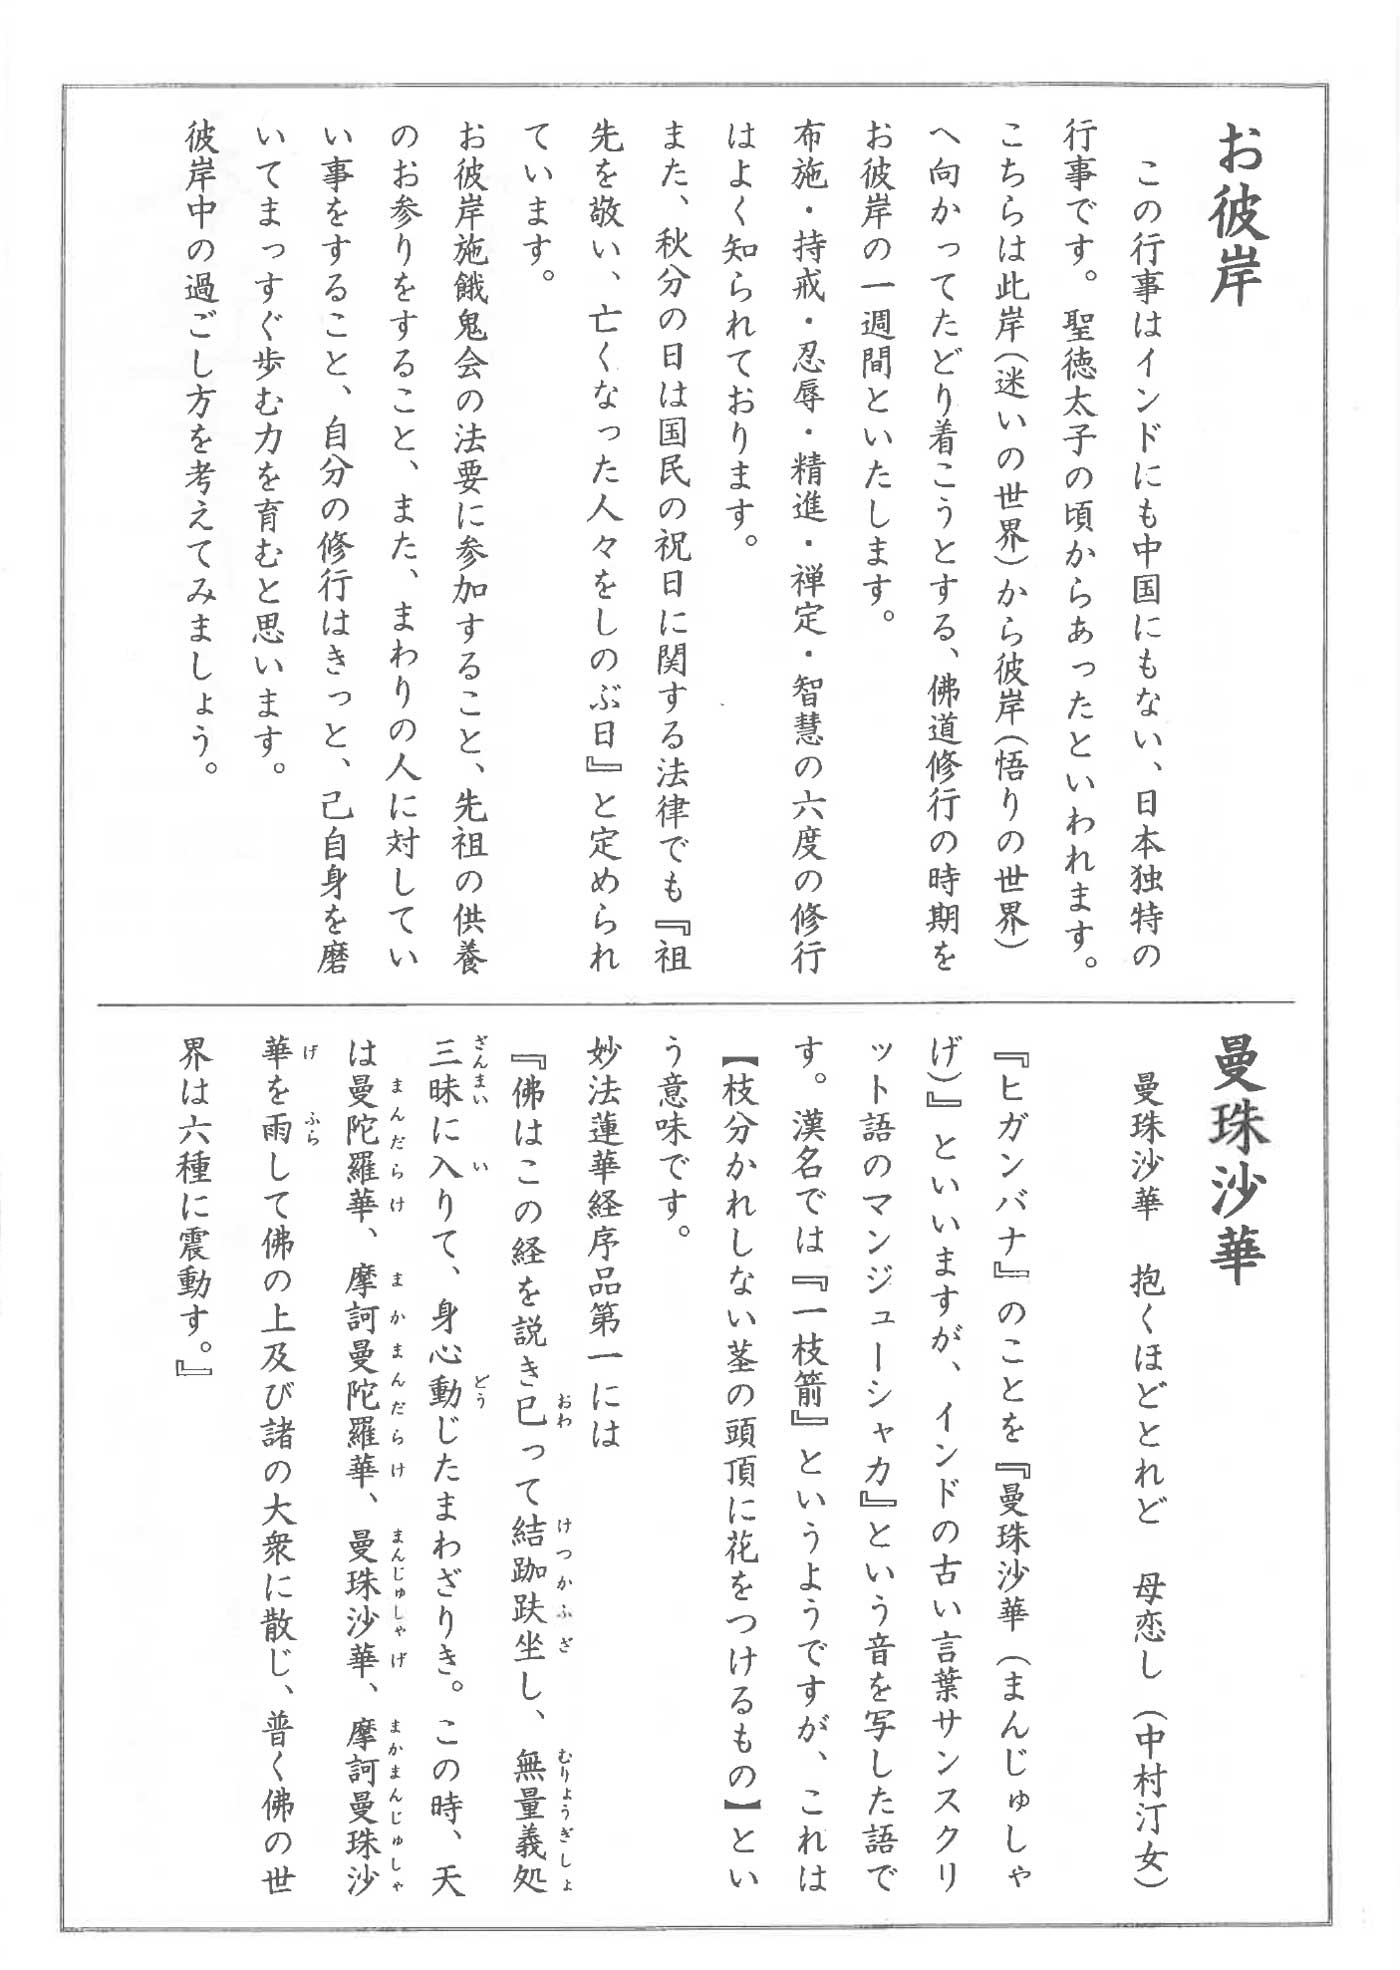 お彼岸
この行事はインドにも中国にもない、日本独特の
行事です。聖徳太子の頃からあったといわれます。
こちらは此岸（迷いの世界）から彼岸（悟りの世界）
へ向かってたどり着こうとする、佛道修行の時期を
お彼岸の一週間といたします。
布施・持戒・忍辱・精進・禅定・智慧の六度の修行
はよく知られております。
また、秋分の日は国民の祝日に関する法律でも『祖
先を敬い、亡くなった人々をしのぶ日』と定められ
ています。
お彼岸施餓鬼会の法要に参加すること、先祖の供養
のお参りをすること、また、まわりの人に対してい
い事をすること、自分の修行はきっと、己自身を磨
いてまっすぐ歩む力を育むと思います。
彼岸中の過ごし方を考えてみましょう。
曼珠沙華
曼珠沙華　抱くほどとれど　母恋し（中村汀女）
『ヒガンバナ』のことを『曼珠沙華（まんじゅしゃ
げ）』といいますが、インドの古い言葉サンスクリ
ット語のマンジューシャカ』という音を写した語で
す。漢名では『一枝箭』というようですが、これは
【枝分かれしない茎の頭頂に花をつけるもの】とい
う意味です。
妙法蓮華経序品第一には
『佛はこの経を説き已って結跏趺坐し、無量義処
おわ　けつかふざ　むりょうぎしょ
三昧に入りて、身心動じたまわざりき。この時、天
ざんまい　い　どう
は曼陀羅華、摩訶曼陀羅華、曼珠沙華、摩訶曼珠沙
まんだらけ　まかまんだらけ　まんじゅしゃげ　まかまんじゅしゃ
華を雨して佛の上及び諸の大衆に散じ、普く佛の世
げ　ふら
界は六種に震動す。』